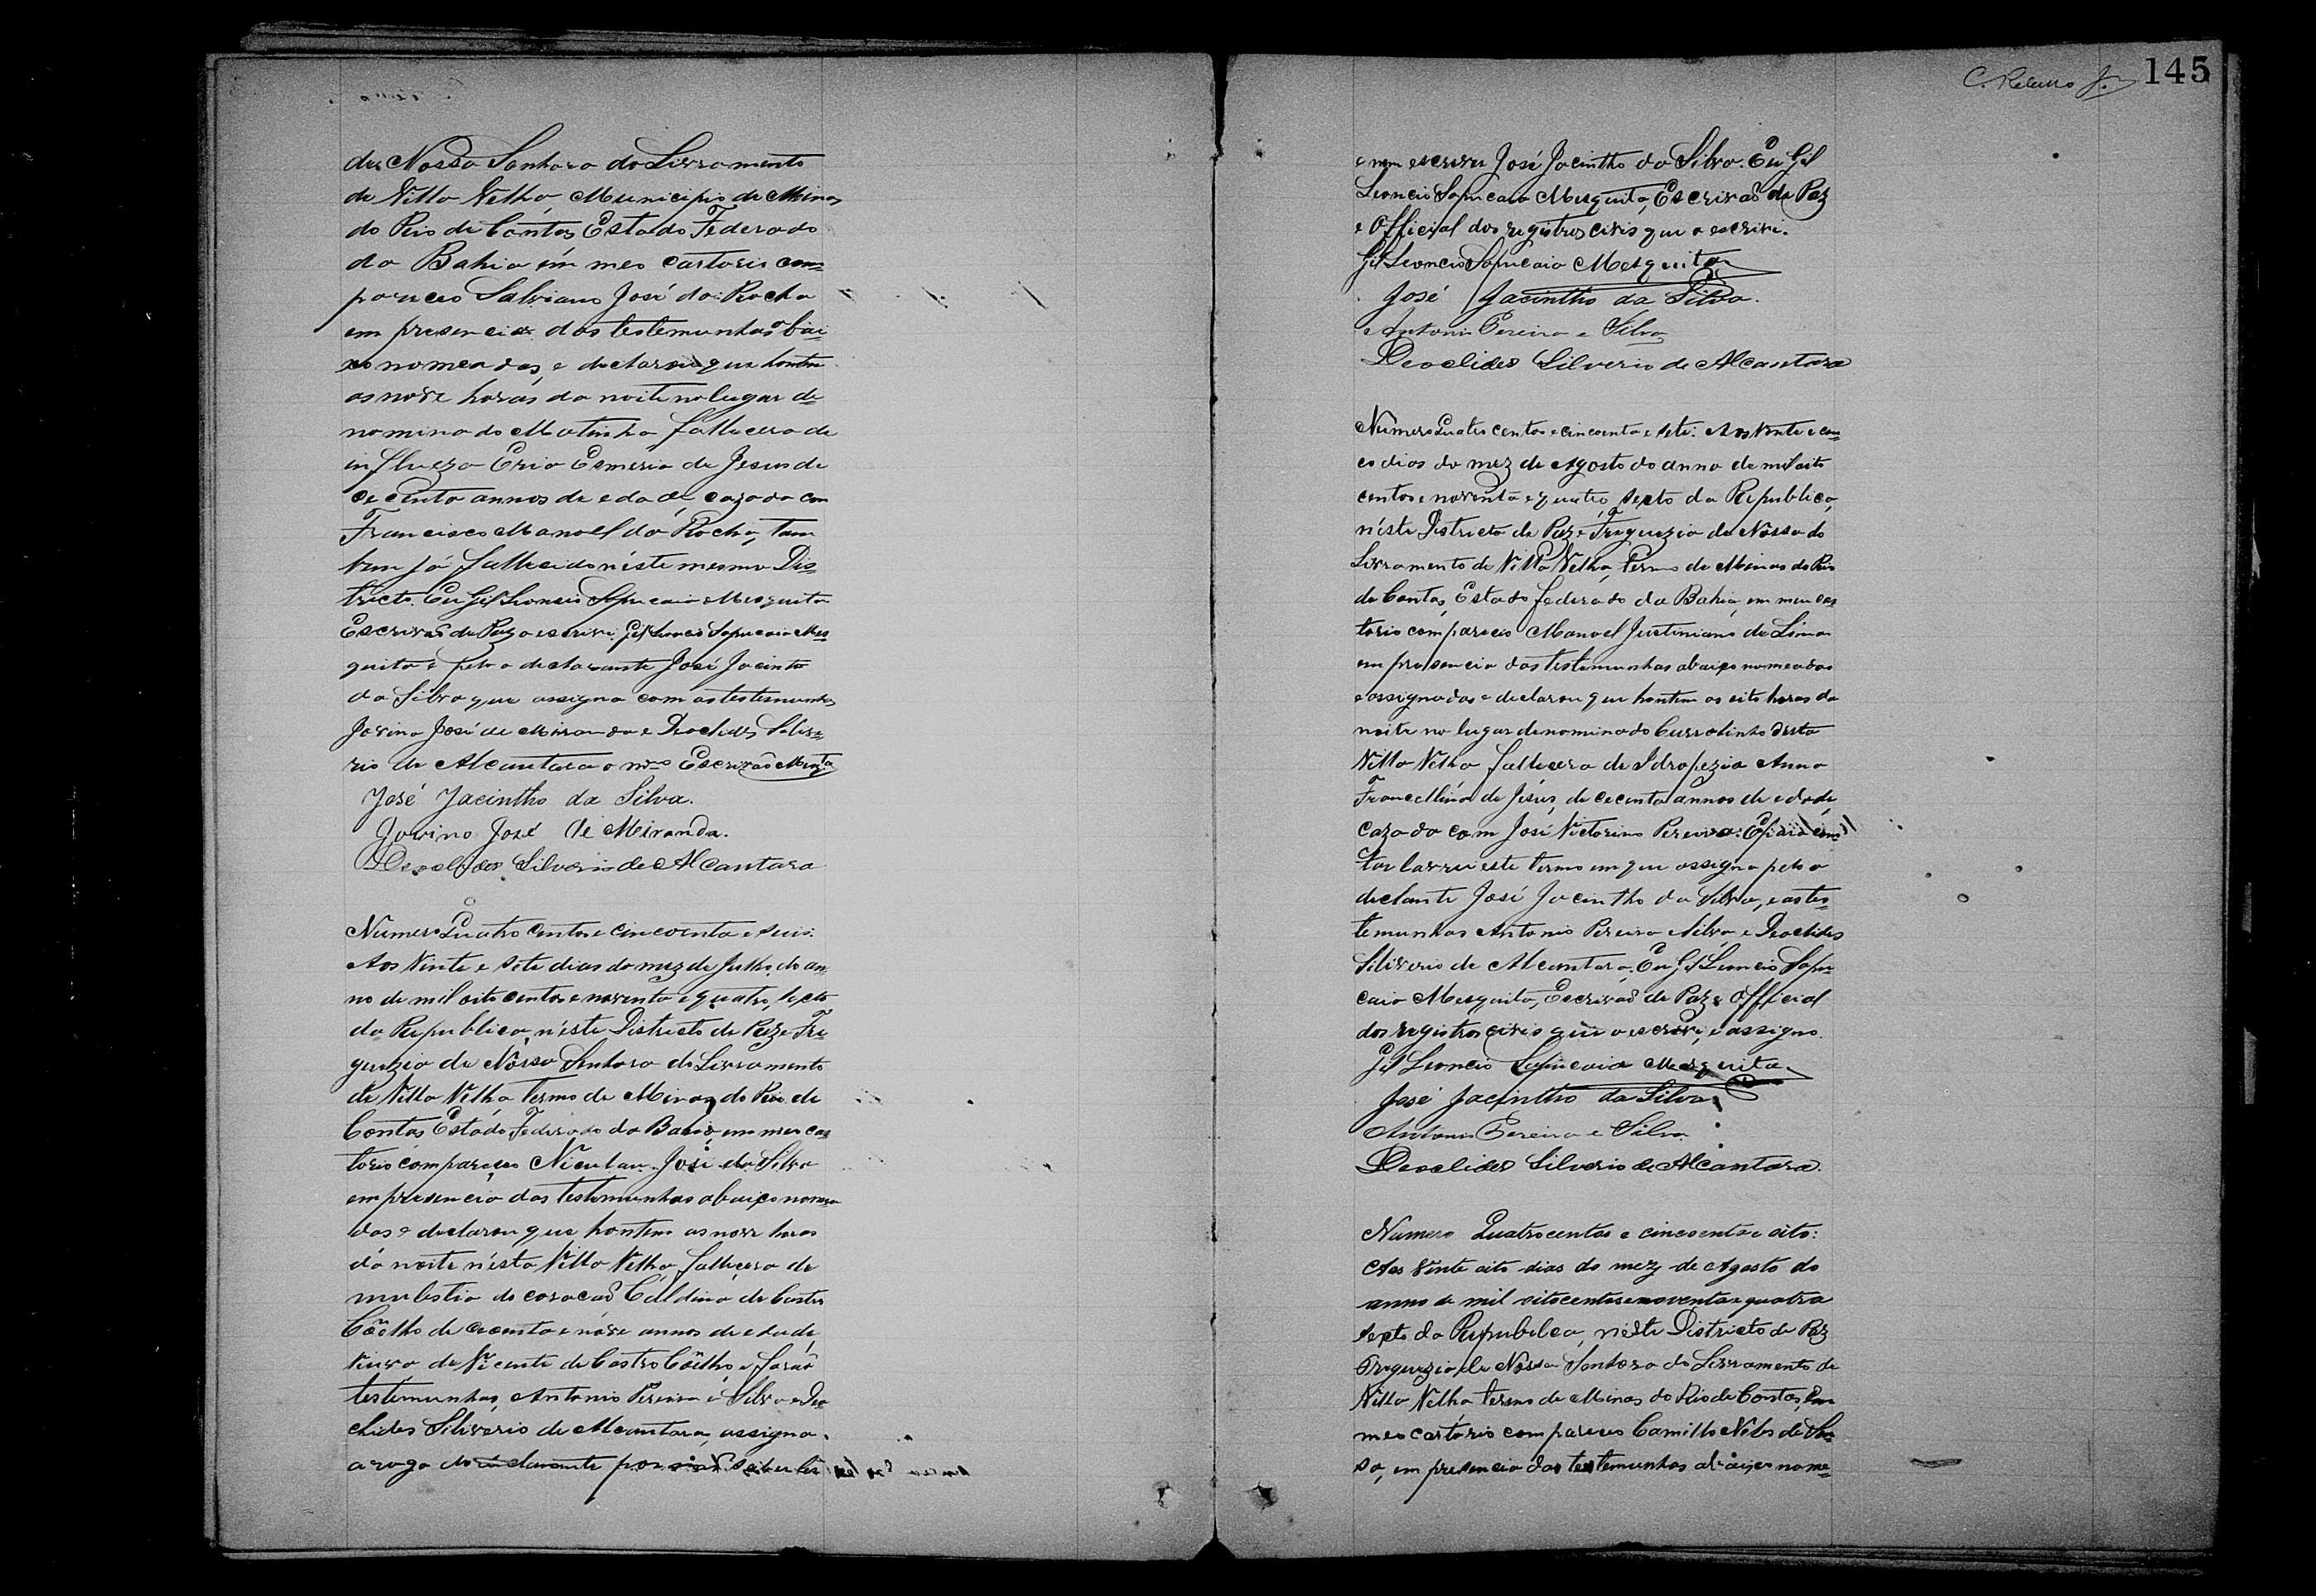 de Nossa Senhora do Livramento
de Villa Velha, Municipio de Minas
do Rio de Contas Estado Federado
da Bahia em meo cartorio com=
pareceo Salviano José da Rocha
em presencia das testemunhas abai=
xo nomeadas, e declarou que hontem
as nove horas da noite no lugar de=
nominado Matinha fallecera de
influeza Eria Esmeria de Jesus de
cecenta annos de edade, cazada com
Francisco Manoel da Rocha, tam
bem já fallecido néste mesmo Dis=
tricto. Eu Gil Leoncio Sapucaia Mesquita
Escrivaõ de Paz o escrivi. Gil Leoncio Sapucaia Mes
quita e pelo declarante José Jacinto
da Silva que assigna com as testemunhas
Jovino José de Miranda e Deoclides Silve=
rio de Alcantara o mmo Escrivaõ Mesqta
José Jacintho da Silva.
Jovino José de Miranda.
Deoclides Silverio de Alcantara
Numero Quatro centos e cincoenta e seis:
Aos Vinte e sete dias do mez de Julho do an
no de mil oito centos e noventa e quatro, sexto
da Republica, néste Districto de Paz e Fre=
guezia de Nossa Senhora do Livramento
de Villa Velha Termo de Minas do Rio de
Contas Estado Federado da Bahia, em meu car
torio compareceo Niculau José da Silva
em presencia das testemunhas abaixo nomea
das e declarou que hontem as nove horas
da noite nésta Villa Velha falleçera de
mulestia do coracaõ Caldina de Castro
Coêlho de cecenta e nove annos de edade,
viuva de Vicente de Castro Coêlho, e foraõ
testemunhas, Antonio Pereira e Silva e Deo
clides Silverio de Alcantara, assigna
a rogo do declarante por naõ saber ler
C. Ribeiro Jr. 145
e nem escrever José Jacintho da Silva. Eu Gil
Leoncio Sapucaia Mesquita, Escrivaõ de Paz
e Official dos registros civis que o escrivi.
Gil Leoncio Sapucaia Mesquita
José Jacintho da Silva.
Antonio Pereira e Silva
Deoclides Silverio de Alcantara
Numero Quatro centos e cincoenta e sete: Aos Vinte e cin
co dias do mez de Agosto do anno de mil oito
centos e noventa e quatro, sexto da Republica,
néste Districto de Paz e Freguezia de Nossa do
Livramento de Villa Velha, termo de Minas do Rio
de Contas, Estado federado da Bahia, em meu car
torio compareceo Manoel Justiniano de Lima
em presencia das testemunhas abaixo nomeadas
e assignadas e declarou que hontem as oito horas da
noite no lugar denominado Curralinho desta
Villa Velha fallecera de Idropezia Anna
Francellina de Jesus, de cecenta annos de edade,
cazada com José Victorino Pereira: E para cons
tar lavrei este termo em que assigna pelo o
declante José Jacintho da Silva, e as tes=
temunhas Antonio Pereira e Silva e Deoclides
Silverio de Alcantara. Eu Gil Leoncio Sapu
caia Mesquita, Escrivaõ de Paz e Official
dos registros civis que o escrivi, e assigno.
Gil Leoncio Sapucaia Mesquita
José Jacintho da Silva
Antonio Pereira e Silva
Deoclides Silverio de Alcantara.
Numero Quatrocentos e cincoenta e oito:
Aos Vinte oito dias do mez de Agosto do
anno de mil oitocentos e noventa e quatro
sexto da Republica, néste Districto de Paz
Freguezia de Nossa Senhora do Livramento de
Villa Velha termo de Minas do Rio de Contas, em
meo cartorio compareceo Camillo Neles de Sou
sa, em presencia das testemunhas abaixo nome=